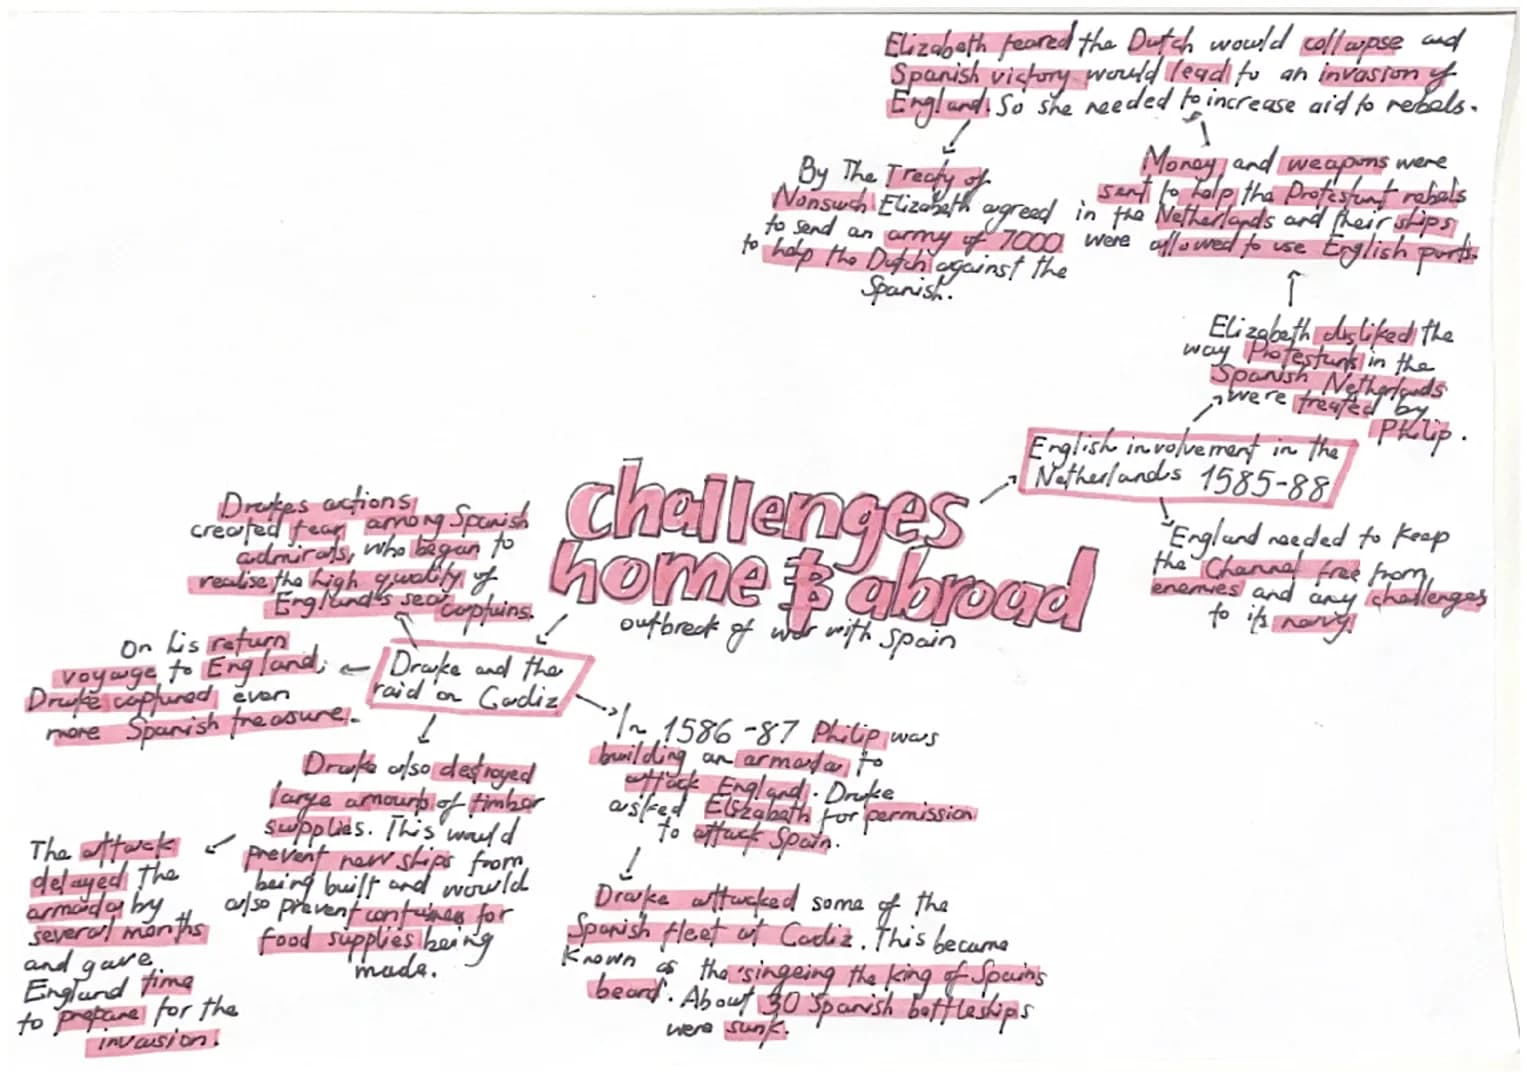 Elizabeth feared the Dutch would collapse and
Spanish victory would lead to an invasion of
England. So she needed to increase aid to rebels.
By The Treaty of
Nonsuch Elizabeth agreed
to send an army of 7000
to help the Dutch against the
Spanish.
Money and weapons were
sent to help the Protestant rebels
in the Netherlands and their ships
were allowed to use English ports.
Elizabeth disliked the
way Protestants in the
Spanish Netherlands
were treated by
Philip.
English involvement in the
Netherlands 1585-88
England needed to keep
the Channel free from
enemies and any challenges
to its navy.
challenges
home & abroad
outbreak of war with Spain
Drakes actions
created fear among Spanish
admirals, who began to
realise the high quality of
England's sea captains.
On his return
voyage to England,
Drake captured even
more Spanish treasure.
Drake and the
raid on Cadiz
Drake also destroyed
large amounts of timber
supplies. This would
prevent new ships from
being built and would
also prevent containers for
food supplies being
made.
The attack
delayed the
armada by
several months
and gave
England time
to prepare for the
invasion.
In 1586-87 Philip was
building an armada to
attack England. Drake
asked Elizabeth for permission
to attack Spain.
Drake attacked some of the
Spanish fleet at Cadiz. This became
known as the 'singeing the king of Spains
beard'. About 30 Spanish battleships
were sunk.